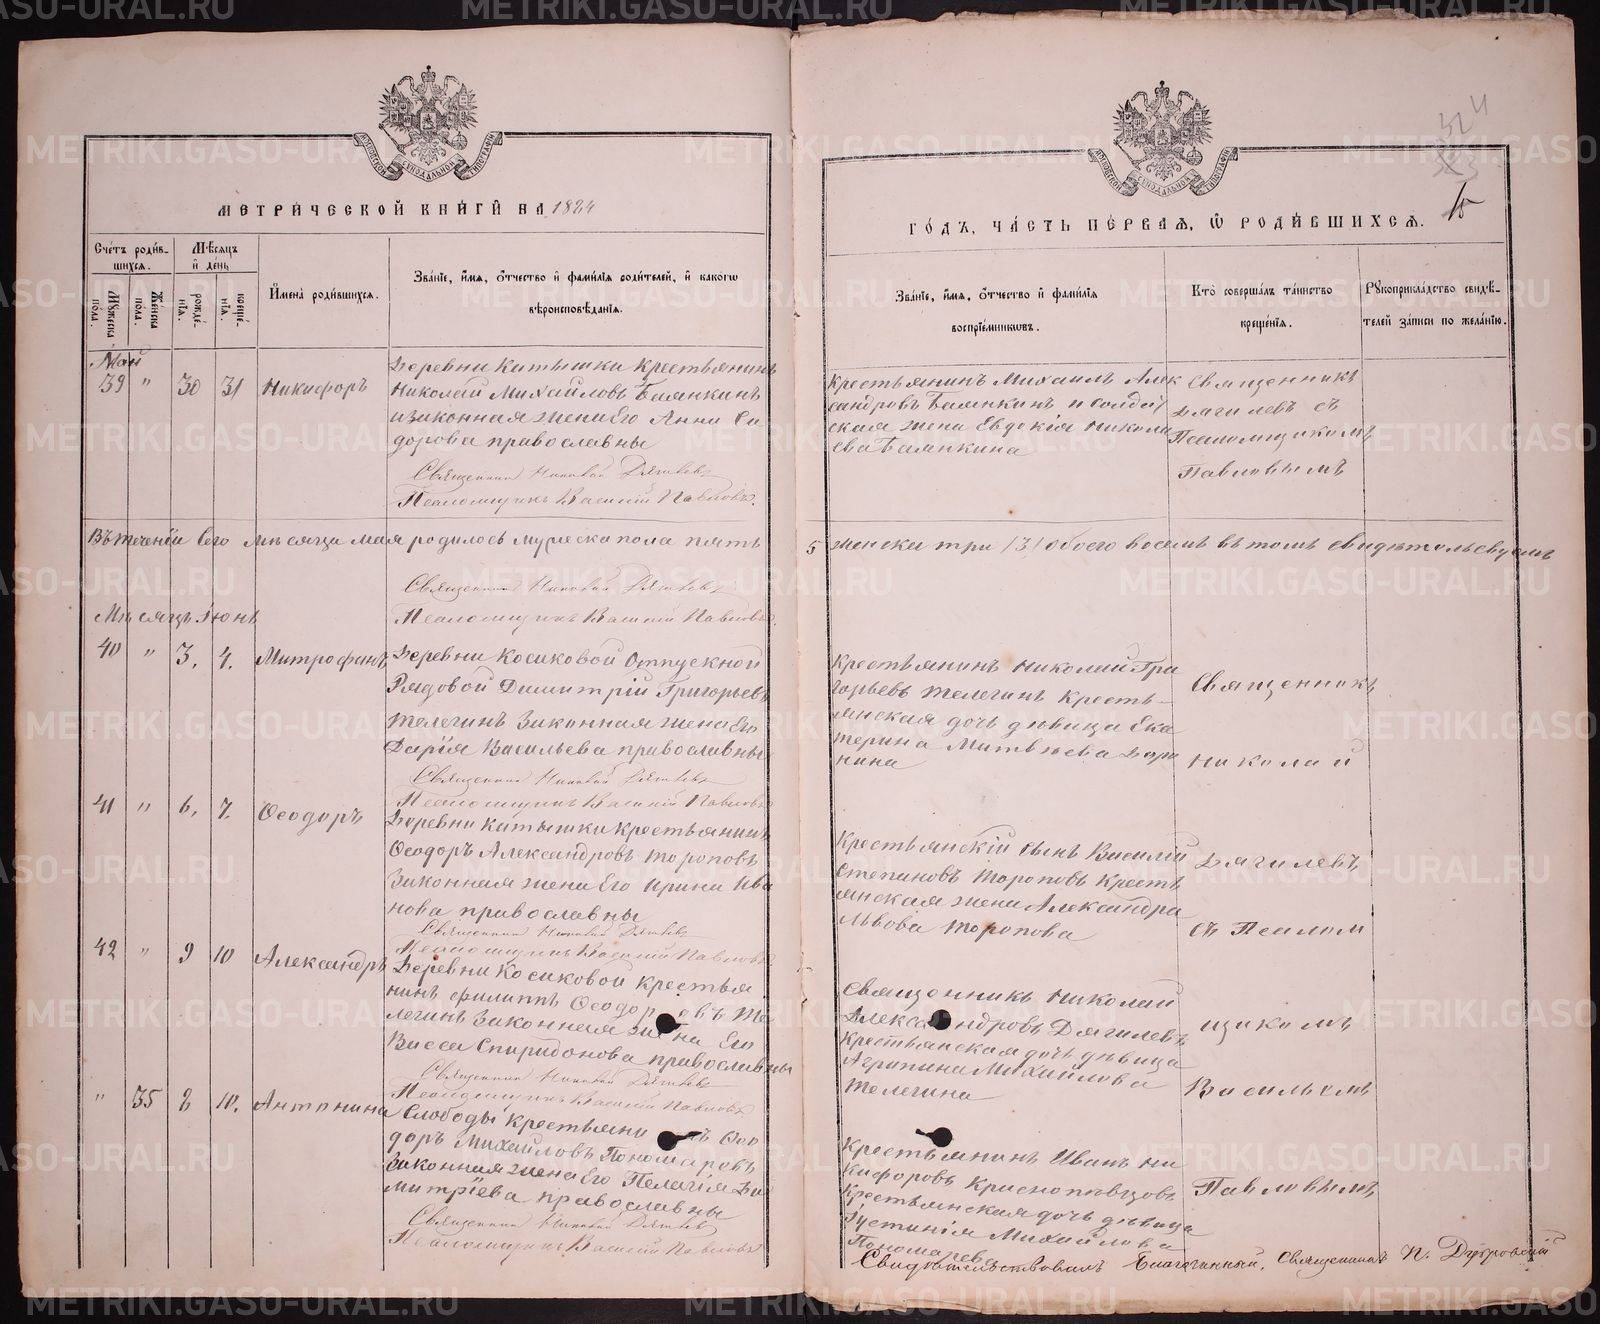 METRIKI.GASO-URAL.RU
МОСКОВСКОЙ СѴНОДАЛЬНОЙ ТИПОГРАФІИ
МЕТРИЧЕСКОЙ КНИГИ НА 1884
Счетъ родившихся.
Мужеска пола.
Женска пола.
Мѣсяцъ и день
рожденія.
крещенія.
Имена родившихся.
Званіе, имя, отчество и фамилія родителей, и какого
вѣроисповѣданія.
Май
39 " 30 31 Никифоръ
Деревни Катышки крестьянинъ
Николай Михайловъ Балнкинъ
изаконная жена Его Анна Си
дорова православны
Священникъ Николай Дягилевъ
Псаломщикъ Василій Павловъ.
Въ теченіи Сего мѣсяца мая родилось мужеска пола пять
Священникъ Николай Дягилевъ
Псаломщикъ Василій Павловъ.
Мѣсяцъ Іюнь
40 " 3. 4. Митрофанъ
Деревни Косиковой Отпускной
Рядовой Димитрій Григорьевъ
Телегинъ Законная жена Его
Дарія Васильева православны
Священникъ Николай Дягилевъ
Псаломщикъ Василій Павловъ
41 " 6. 7. Ѳеодоръ
Деревни Катышки крестьянинъ
Ѳеодоръ Александровъ Тороповъ
Законная жена Его Ирина Ива
нова православны
Священникъ Николай Дягилевъ
Псаломщикъ Василій Павловъ
42 " 9 10 Александръ
Деревни Косиковой крестья
нинъ Филиппъ Ѳеодоровъ Те
легинъ Законная жена Его
Васса Спиридонова православны
Священникъ Николай Дягилевъ
Псаломщикъ Василій Павловъ
" 35 8 10. Антонина
Слободы крестьянинъ Ѳео
доръ Михайловъ Пономаревъ
Законная жена Его Пелагія Ди
митріева православны
Священникъ Николай Дягилевъ
Псаломщикъ Василій Павловъ
ГОДЪ, ЧАСТЬ ПЕРВАЯ, Ѡ РОДИВШИХСЯ.
Званіе, имя, отчество и фамилія
воспріемниковъ.
Кто совершалъ таинство
крещенія.
Рукоприкладство свидѣ-
телей записи по желанію.
Крестьянинъ Михаилъ Алек
сандровъ Балнкинъ и солдат
ская жена Евдокія Никола
ева Балнкина
Священникъ
Дягилевъ съ
Псаломщикомъ
Павловымъ
5 женска три /3/ обоего восемь въ томъ свидѣтельсвуемъ
Крестьянинъ Николай Гри
горьевъ Телегинъ Кресть-
янская дочь дѣвица Ека
терина Матвѣева
Крестьянскій сынъ Василій
Степановъ Тороповъ Кресть
янская жена Александра
Львова Торопова
Священникъ Николай
Александровъ Дягилевъ
Крестьянская дочь дѣвица
Агрипина Михайлова
Телегина
Крестьянинъ Иванъ Ни
кифоровъ Краснопѣвцовъ
Крестьянская дочь дѣвица
Іустинія Михайлова
Пономарева
Священникъ
Николай
Дягилевъ
съ Псалом
щикомъ
Васильемъ
Павловымъ
Свидѣтельствовалъ Благочинный, Священникъ Н. Дубровскій